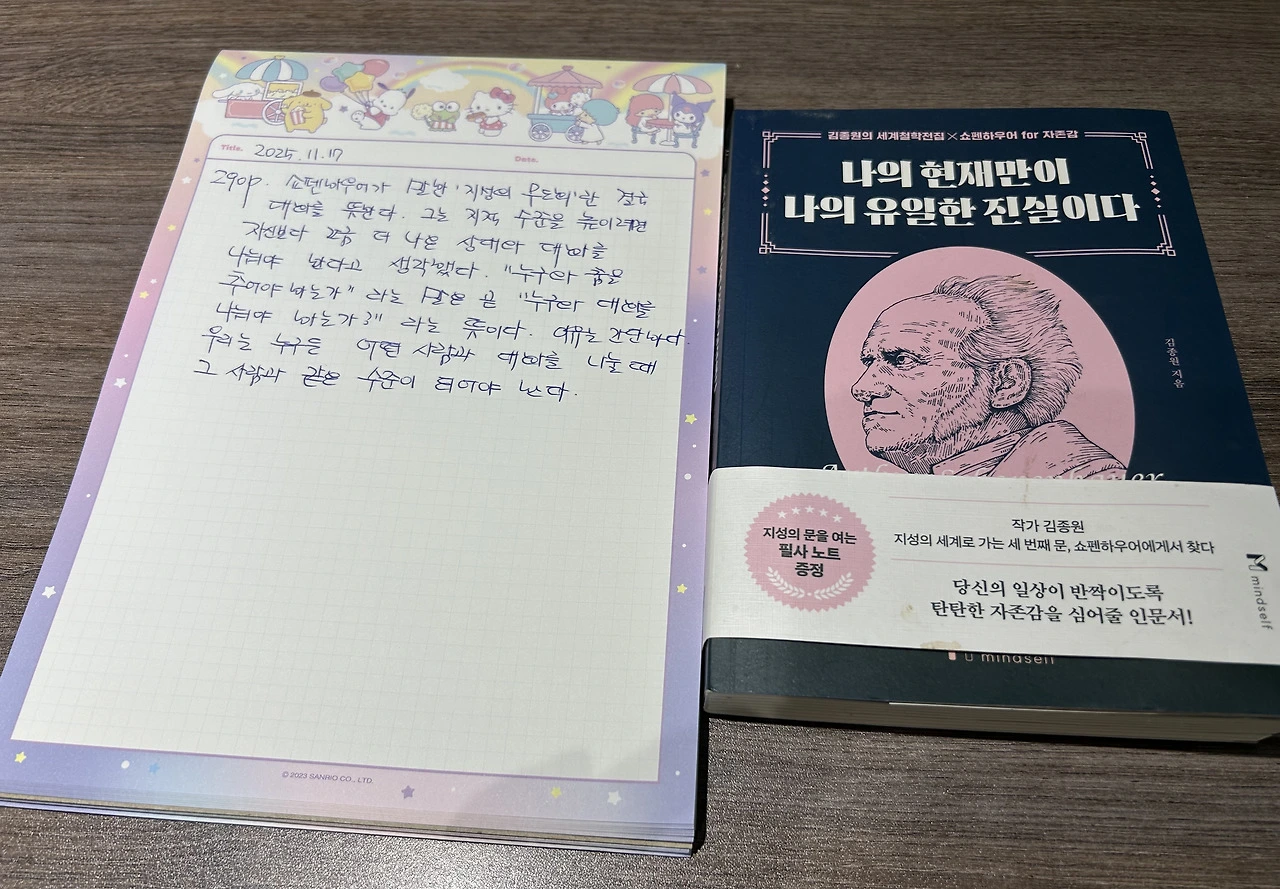 Title. 2025. 11. 17 Date.
290p. 쇼펜하우어가 말한 '지성의 무도회'란 결국
대화를 뜻한다. 그는 지적 수준을 높이려면
자신보다 조금 더 나은 상대와 대화를
나눠야 한다고 생각했다. "누구와 춤을
추어야 하는가" 라는 말은 곧 "누구와 대화를
나눠야 하는가?" 라는 뜻이다. 이유는 간단하다.
우리는 누구든 어떤 사람과 대화를 나눌 때
그 사람과 같은 수준이 되어야 한다.
© 2023 SANRIO CO., LTD.
김종원의 세계철학전집 × 쇼펜하우어 for 자존감
나의 현재만이
나의 유일한 진실이다
김종원 지음
지성의 문을 여는
필사 노트
증정
작가 김종원
지성의 세계로 가는 세 번째 문, 쇼펜하우어에게서 찾다
당신의 일상이 반짝이도록
탄탄한 자존감을 심어줄 인문서!
mindself
mindself